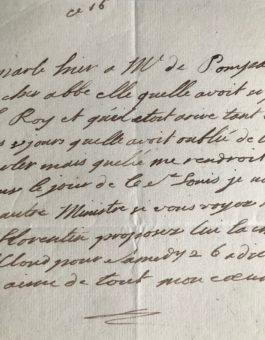 ce 16
parlé hier a Mr de Pompa
cher abbe elle quelle avoit
Roy et quil etoit arivé tant
jours quelle avoit oublié de
mais quelle me rendroit
le jour de la St Louis je
autre Ministre si vous voyez
florentin proposez lui la
Cloud pour Samedy 26 aout
aime de tout mon cœur